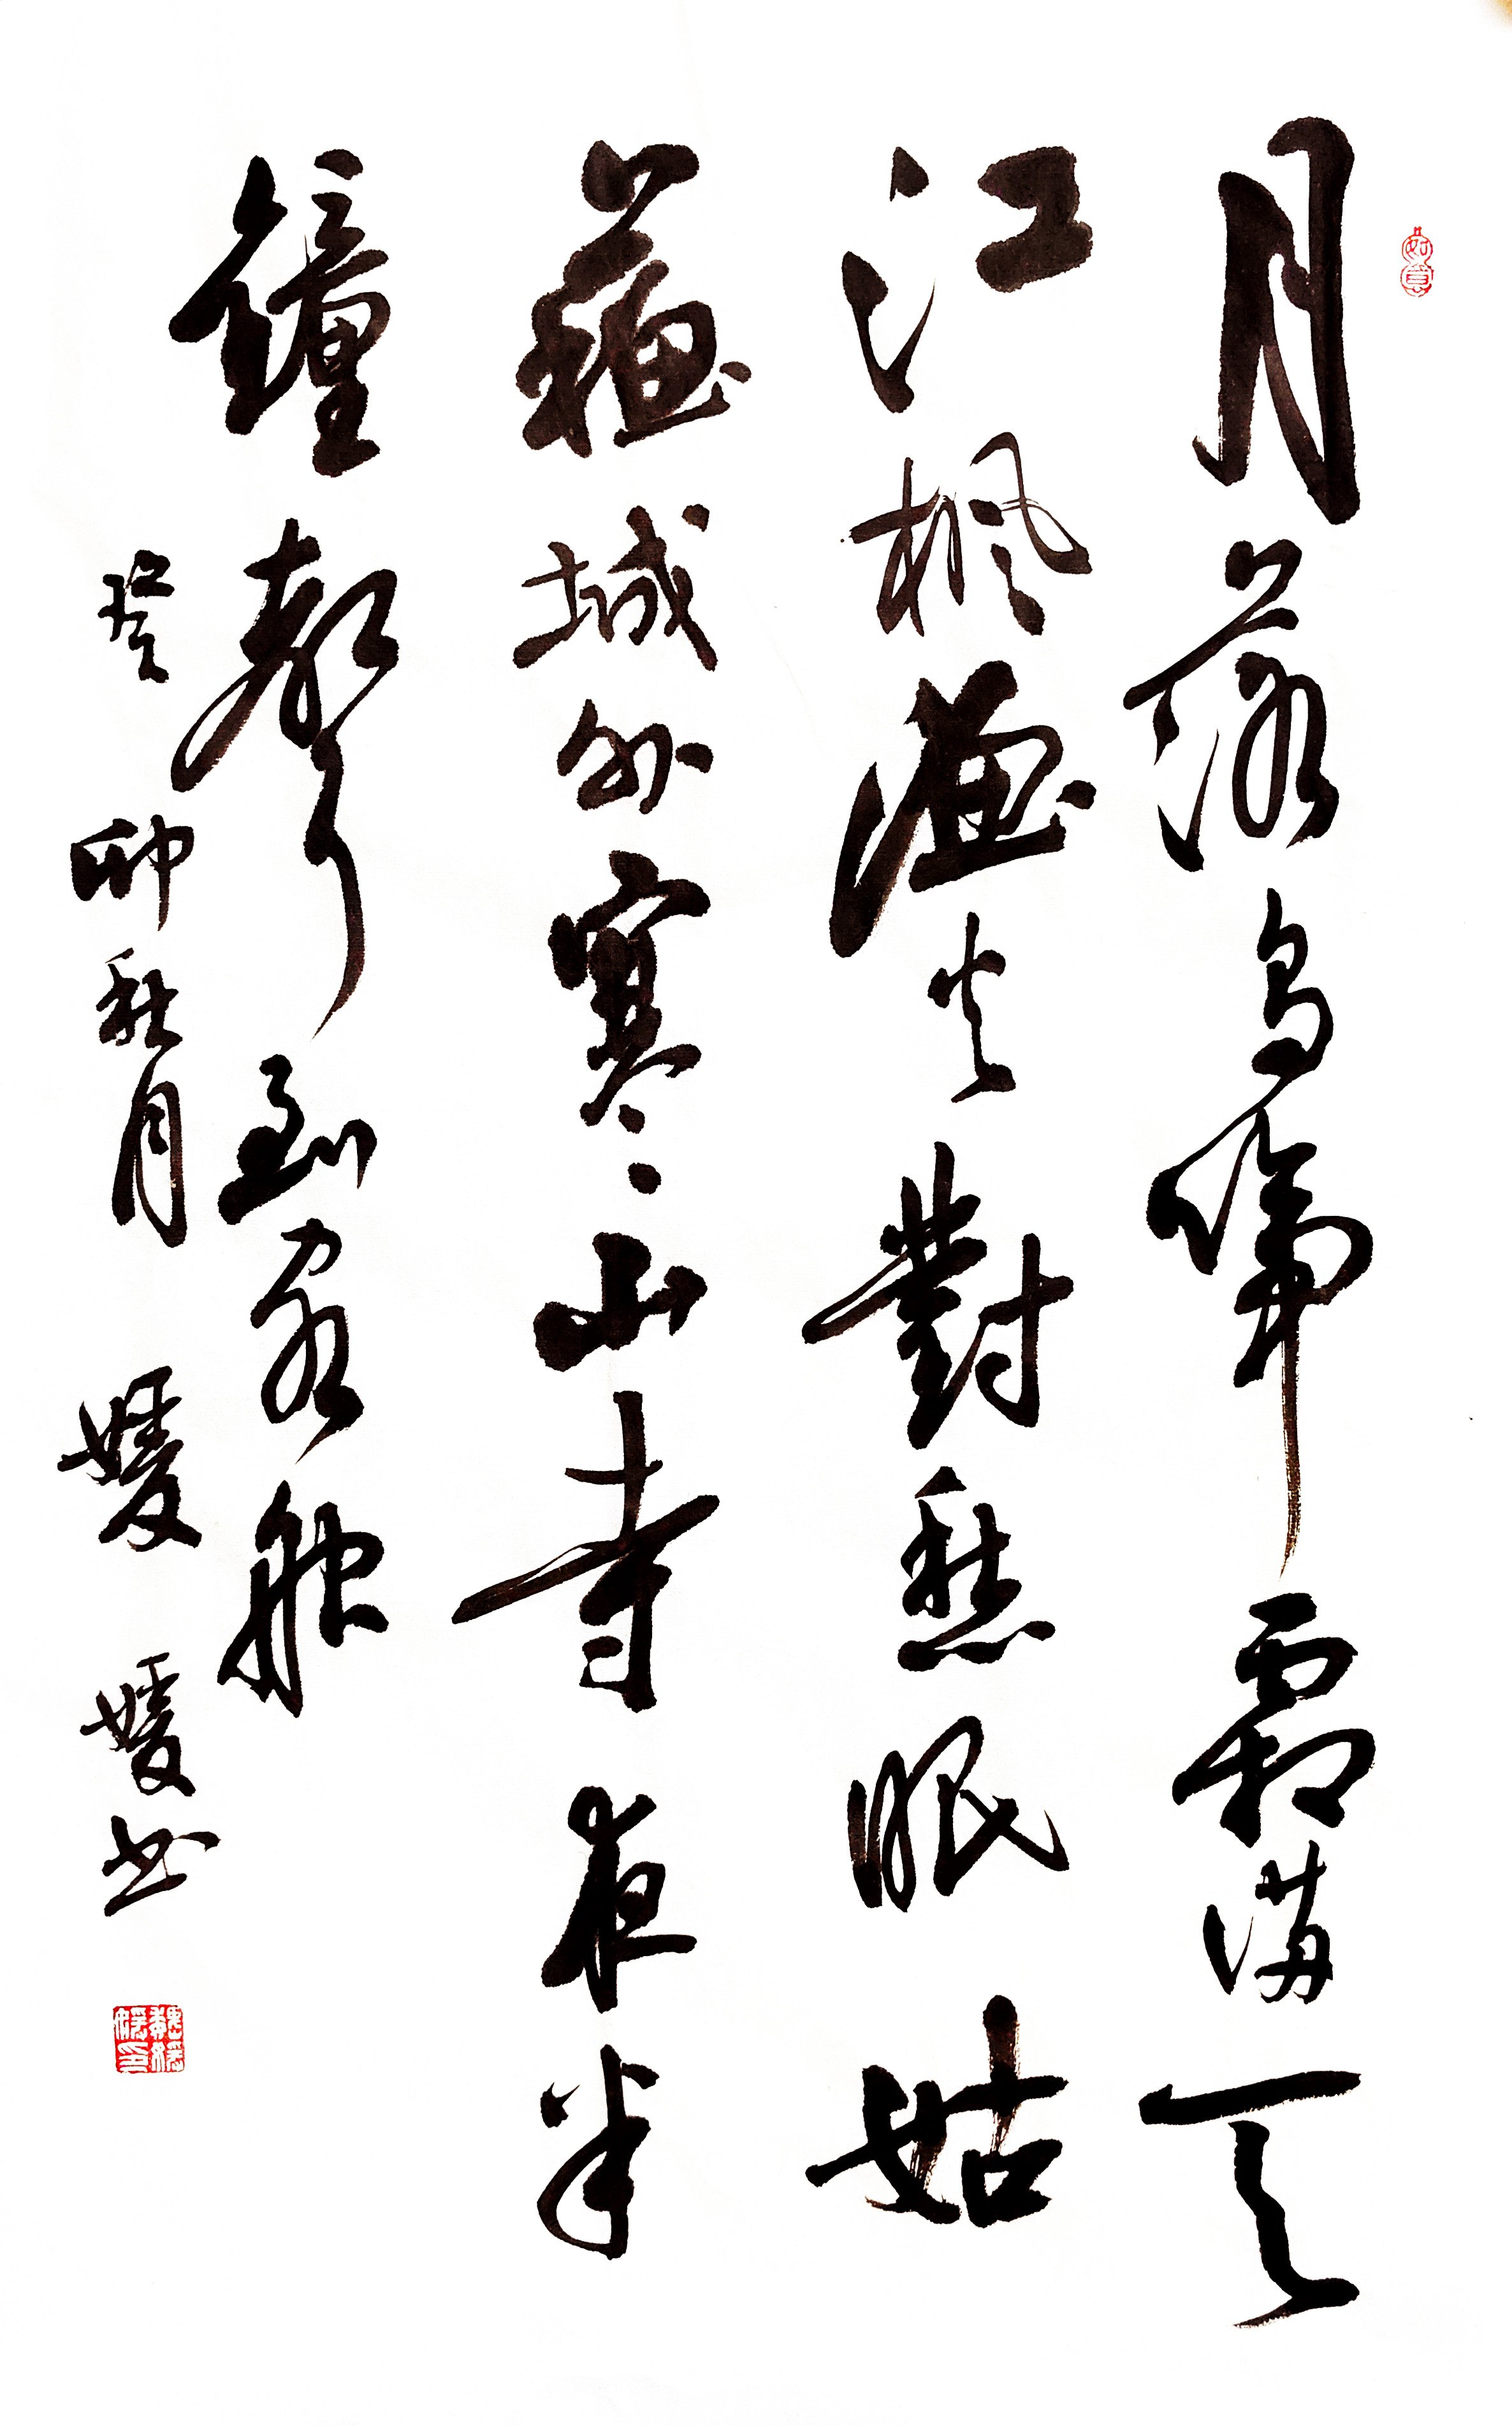 如意
月落烏啼霜满天
江楓漁火對愁眠姑
蘇城外寒山寺夜半
鐘聲到客船
癸卯秋月媛媛书